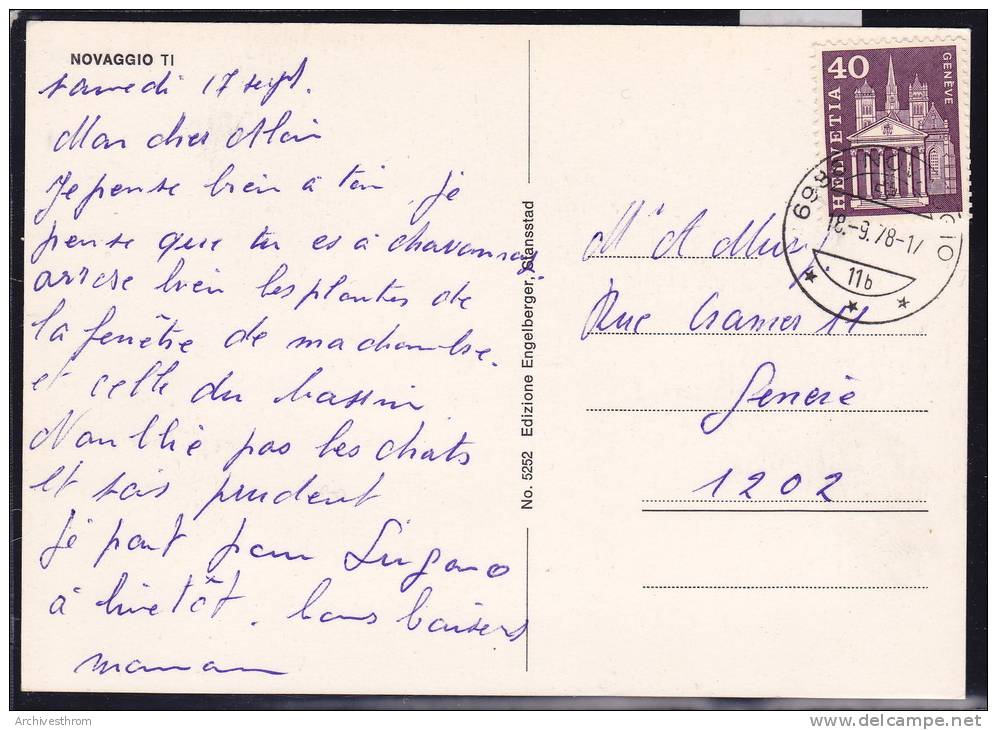 NOVAGGIO TI
samedi 17 sept.
Mon cher Alain
Je pense bien à toi je
pense que tu es à chavannes
arrose bien les plantes de
la fenêtre de ma chambre.
et celle du bassin
N'oublie pas les chats
et sois prudent
Je part pour Lugano
à bientôt. bons baisers
maman
No. 5252 Edizione Engelberger, Stansstad
HELVETIA 40 GENÈVE
18.-9.78-17
11b
Rue Cramer 11
Genève
1202
Archivesthrom
delcampe.net